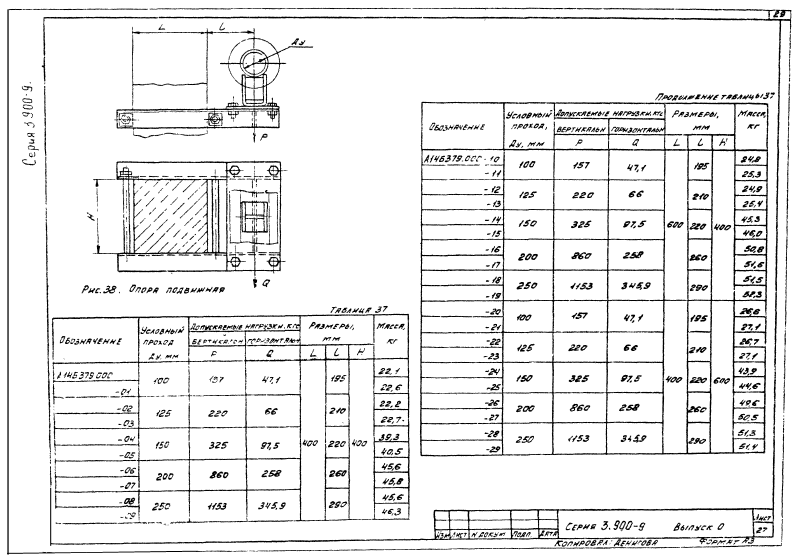 29
Серия 3.900-9.
L L
Ду
P
H
Q
Рис.38. Опора подвижная
Таблица 37
Обозначение | Условный проход Ду, мм | Допускаемые нагрузки, кгс | Размеры, мм | Масса, кг
Вертикальн P | Горизонтальн Q | L | L | H
А14Б379.000 | 100 | 157 | 47,1 | 400 | 195 | 400 | 22,1
-01 | 22,6
-02 | 125 | 220 | 66 | 210 | 22,2
-03 | 22,7
-04 | 150 | 325 | 97,5 | 220 | 39,3
-05 | 40,5
-06 | 200 | 860 | 258 | 260 | 45,6
-07 | 45,8
-08 | 250 | 1153 | 345,9 | 290 | 45,6
-09 | 46,3
Продолжение таблицы 37
Обозначение | Условный проход, Ду, мм | Допускаемые нагрузки, кгс | Размеры, мм | Масса, кг
Вертикальн P | Горизонтальн Q | L | L | H
А14Б379.000-10 | 100 | 157 | 47,1 | 600 | 195 | 400 | 24,8
-11 | 25,3
-12 | 125 | 220 | 66 | 210 | 24,9
-13 | 25,4
-14 | 150 | 325 | 97,5 | 220 | 45,3
-15 | 46,0
-16 | 200 | 860 | 258 | 260 | 50,8
-17 | 51,6
-18 | 250 | 1153 | 345,9 | 290 | 51,5
-19 | 52,3
-20 | 100 | 157 | 47,1 | 400 | 195 | 600 | 26,6
-21 | 27,1
-22 | 125 | 220 | 66 | 210 | 26,7
-23 | 27,1
-24 | 150 | 325 | 97,5 | 220 | 43,9
-25 | 44,6
-26 | 200 | 860 | 258 | 260 | 49,6
-27 | 50,5
-28 | 250 | 1153 | 345,9 | 290 | 51,3
-29 | 51,4
Изм Лист N докум Подп Дата
Серия 3.900-9 Выпуск 0
Лист
27
Копировал: Денисова Формат А3